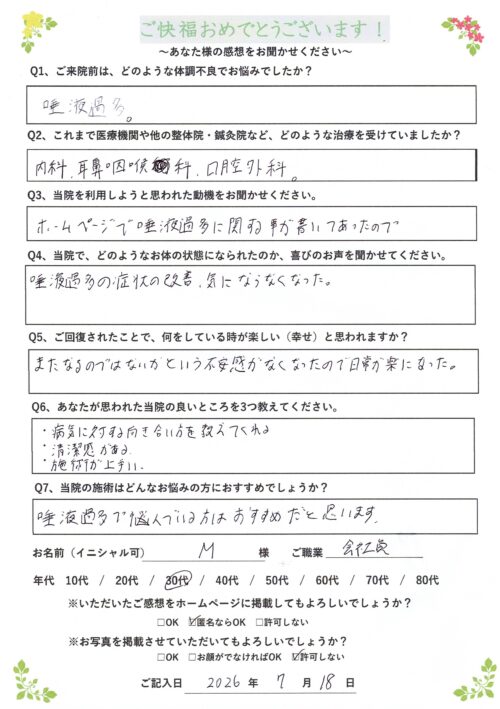 ご快福おめでとうございます！
～あなた様の感想をお聞かせください～
Q1、ご来院前は、どのような体調不良でお悩みでしたか？
唾液過多。
Q2、これまで医療機関や他の整体院・鍼灸院など、どのような治療を受けていましたか？
内科、耳鼻咽喉科、口腔外科。
Q3、当院を利用しようと思われた動機をお聞かせください。
ホームページで唾液過多に関する事が書いてあったので
Q4、当院で、どのようなお体の状態になられたのか、喜びのお声を聞かせてください。
唾液過多の症状の改善、気にならなくなった。
Q5、ご回復されたことで、何をしている時が楽しい（幸せ）と思われますか？
またなるのではないかという不安感がなくなったので日常が楽になった。
Q6、あなたが思われた当院の良いところを3つ教えてください。
・病気に対する向き合い方を教えてくれる
・清潔感がある
・施術が上手い。
Q7、当院の施術はどんなお悩みの方におすすめでしょうか？
唾液過多で悩んでいる方はおすすめだと思います。
お名前（イニシャル可） M 様 ご職業 会社員
年代 10代 / 20代 / 30代 / 40代 / 50代 / 60代 / 70代 / 80代
※いただいたご感想をホームページに掲載してもよろしいでしょうか？
□OK ☑匿名ならOK □許可しない
※お写真を掲載させていただいてもよろしいでしょうか？
□OK □お顔がでなければOK ☑許可しない
ご記入日 2026 年 7 月 18 日